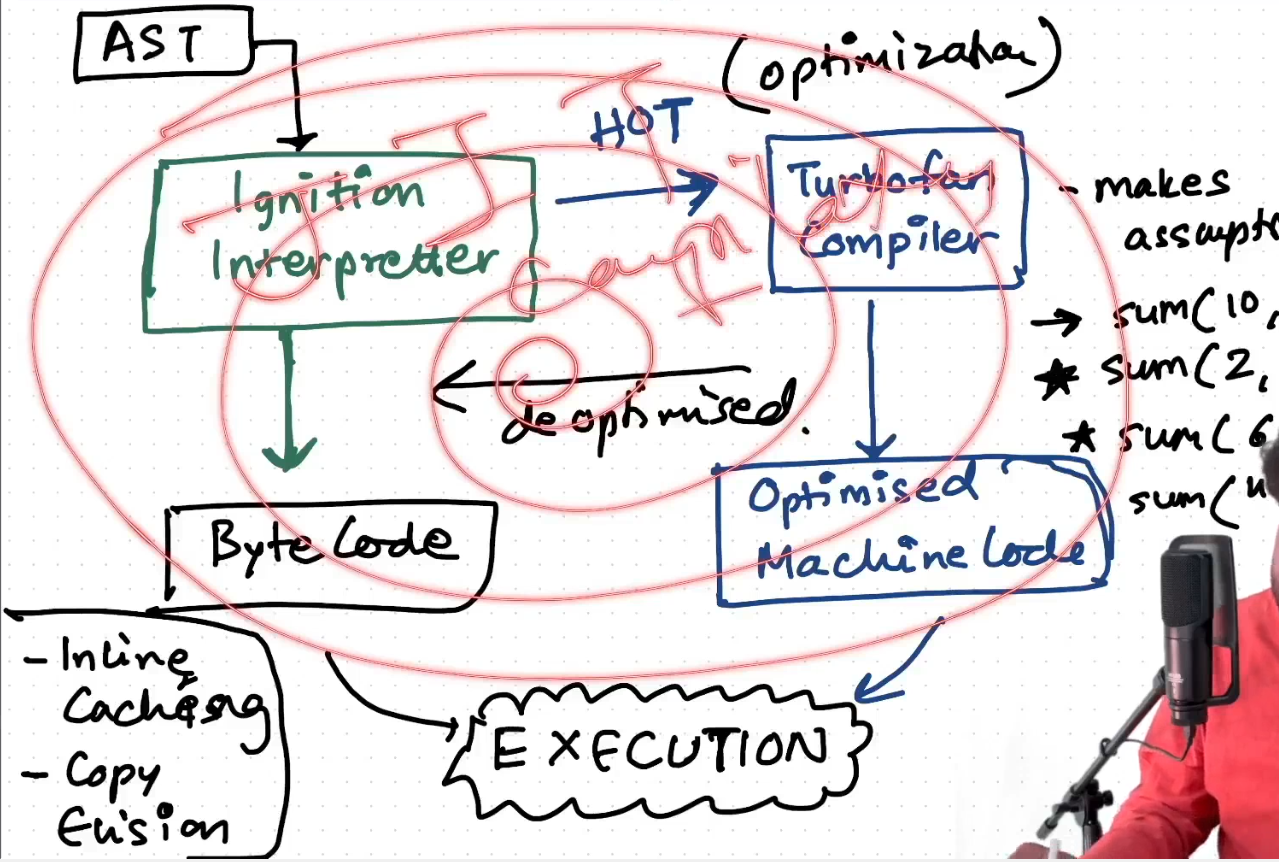 AST
(optimization)
HOT
JIT
Compilation
Ignition
Interpretter
Turbofan
Compiler
- makes
assumpt
→ sum(10,
★ sum(2,
★ sum(6
sum("
deoptimised.
Byte Code
Optimised
Machine Code
- Inline
Caching
- Copy
Elision
EXECUTION